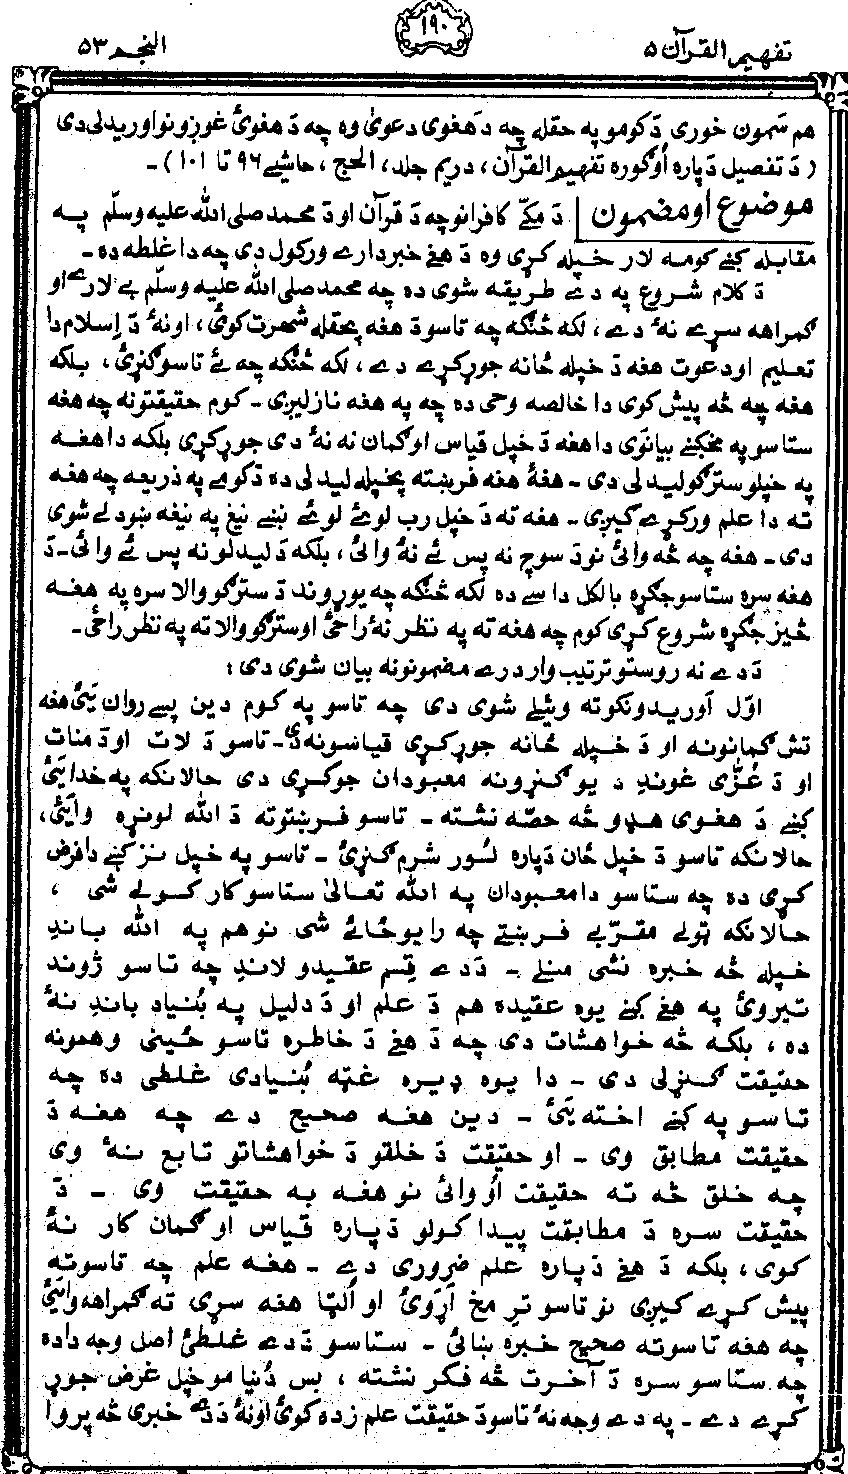 تفهيم القرآن ۵
۱۹۰
النجم ۵۳
هم سَمون خوری دَ کومو په حقله چه دَ هَغوی دعویٰ وه چه دَ هغویٔ غوږونو اوریدلی دی
( دَ تفصیل دَپاره اُوګوره تفهیم القرآن، دریم جلد، الحج، حاشیے ۹۶ تا ۱۰۱ )-
موضوع او مضمون دَ مکّے کافرانو چه دَ قرآن او دَ محمد صلی الله علیه وسلّم په
مقابله کښے کومه لار خپله کړی وه دَ هغے خبردارے ورکول دی چه دا غلطه ده-
دَ کلام شروع په دے طریقه شوی ده چه محمد صلی الله علیه وسلّم بے لارے او
ګمراهه سړے نهٔ دے، لکه څنګه چه تاسو دَ هغه په حقله شهرت کویٔ، او نهٔ دَ اِسلام دا
تعلیم او دعوت هغه دَ خپله ځانه جوړ کړے دے، لکه څنګه چه ئے تاسو ګنړیٔ، بلکه
هغه چه څه پیش کوی دا خالصه وحی ده چه په هغه نازلیږی- کوم حقیقتونه چه هغه
ستاسو په مخکښے بیانَوی دا هغه دَ خپل قیاس او ګمان نه نهٔ دی جوړ کړی بلکه دا هغه
په خپلو سترګو لیدلی دی- هغهٔ هغه فرښته په خپله لیدلی ده دَ کومے په ذریعه چه هغه
ته دا علم ورکړے کیږی- هغه ته دَ خپل رب لوئے لوئے نښے نیغ په نیغه ښودلے شوی
دی- هغه چه څه وائیٔ نو دَ سوچ نه پس ئے نهٔ وائیٔ، بلکه دَ لیدلو نه پس ئے وائی- دَ
هغه سره ستاسو جګړه بالکل داسے ده لکه څنګه چه یو ړوند دَ سترګو والا سره په هغه
څیز جګړه شروع کړی کوم چه هغه ته په نظر نهٔ راځیٔ او سترګو والا ته په نظر راځی-
دَدے نه روستو ترتیب وار درے مضمونونه بیان شوی دی:
اوّل آوریدونکو ته وئیلے شوی دی چه تاسو په کوم دین پسے روان یئیٔ هغه
تش ګمانونه او دَ خپله ځانه جوړ کړی قیاسونه دی- تاسو دَ لات او دَ منات
او دَ عُزّٰی غوندِ دَ یو ګنړونه معبودان جوړ کړی دی حالانکه په خدایئیٔ
کښے دَ هغوی هډو څه حصّه نشته- تاسو فرښتو ته دَ الله لونړه وایئیٔ،
حالانکه تاسو دَ خپل ځان دَپاره لُور شرم ګنړیٔ- تاسو په خپل نزد کښے دا فرض
کړی ده چه ستاسو دا معبودان په الله تعالیٰ ستاسو کار کولے شی،
حالانکه ټولے مقرّبے فرښتے چه را یوځائے شی نو هم په الله باندِ
خپله څه خبره نشی منلے- دَدے قِسم عقیدو لاندِ چه تاسو ژوند
تیرویٔ په هغے کښے یوه عقیده هم دَ علم او دَ دلیل په بُنیاد باندِ نهٔ
ده، بلکه څه خواهشات دی چه دَ هغے دَ خاطره تاسو ځینی وهمونه
حقیقت ګنړلی دی- دا یوه ډیره غټه بُنیادی غلطی ده چه
تاسو په کښے اخته یئیٔ- دین هغه صحیح دے چه هغه دَ
حقیقت مطابق وی- او حقیقت دَ خلقو دَ خواهشاتو تابع نهٔ وی
چه خلق څه ته حقیقت اُووائیٔ نو هغه به حقیقت وی- دَ
حقیقت سره دَ مطابقت پیدا کولو دَپاره قیاس او ګمان کار نهٔ
کوی، بلکه دَ هغے دَپاره علم ضروری دے- هغه علم چه تاسو ته
پیش کړے کیږی نو تاسو تر مخ آړَویٔ او اُلټا هغه سړی ته ګمراهه وایئیٔ
چه هغه تاسو ته صحیح خبره ښائی- ستاسو دَدے غلطیٔ اصل وجه دا ده
چه ستاسو سره دَ آخرت څه فکر نشته، بس دُنیا مو خپل غرض جوړ
کړے دے- په دے وجه نهٔ تاسو دَ حقیقت علم زده کویٔ او نهٔ دَدے خبری څه پروا